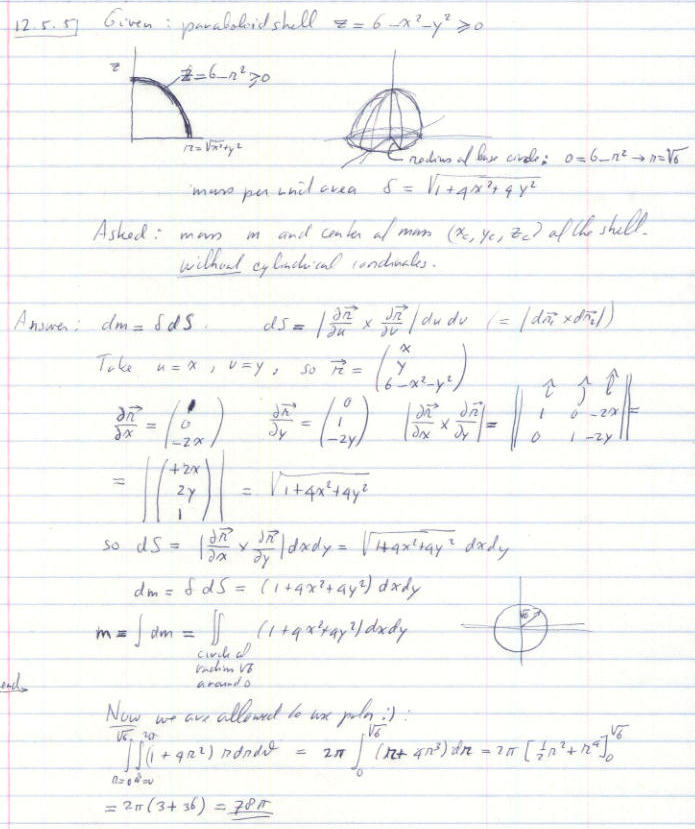 12.5.5] Given : paraboloid shell z = 6 - x² - y² ≥ 0
z
z = 6 - r² ≥ 0
r = √x²+y²
radius of base circle: 0 = 6 - r² → r = √6
mass per unit area δ = √1+4x²+4y²
Asked : mass m and center of mass (x_c, y_c, z_c) of the shell.
without cylindrical coordinates.
Answer: dm = δ dS . dS = |∂r⃗/∂u × ∂r⃗/∂v| du dv (= |dr⃗₁ × dr⃗₂|)
Take u = x , v = y , so r⃗ = (x y 6-x²-y²)
∂r⃗/∂x = (1 0 -2x) ∂r⃗/∂y = (0 1 -2y) |∂r⃗/∂x × ∂r⃗/∂y| = || î ĵ k̂ 1 0 -2x 0 1 -2y || =
= |(+2x 2y 1)| = √1+4x²+4y²
so dS = |∂r⃗/∂x × ∂r⃗/∂y| dx dy = √1+4x²+4y² dx dy
dm = δ dS = (1+4x²+4y²) dx dy
m = ∫ dm = ∬ (1+4x²+4y²) dx dy
circle of
radius √6
around 0
√6
end
Now we are allowed to use polar :) :
∫_{r=0}^{√6} ∫_{ϑ=0}^{2π} (1+4r²) r dr dϑ = 2π ∫_0^{√6} (r+4r³) dr = 2π [½r²+r⁴]_0^{√6}
= 2π (3+36) = 78π